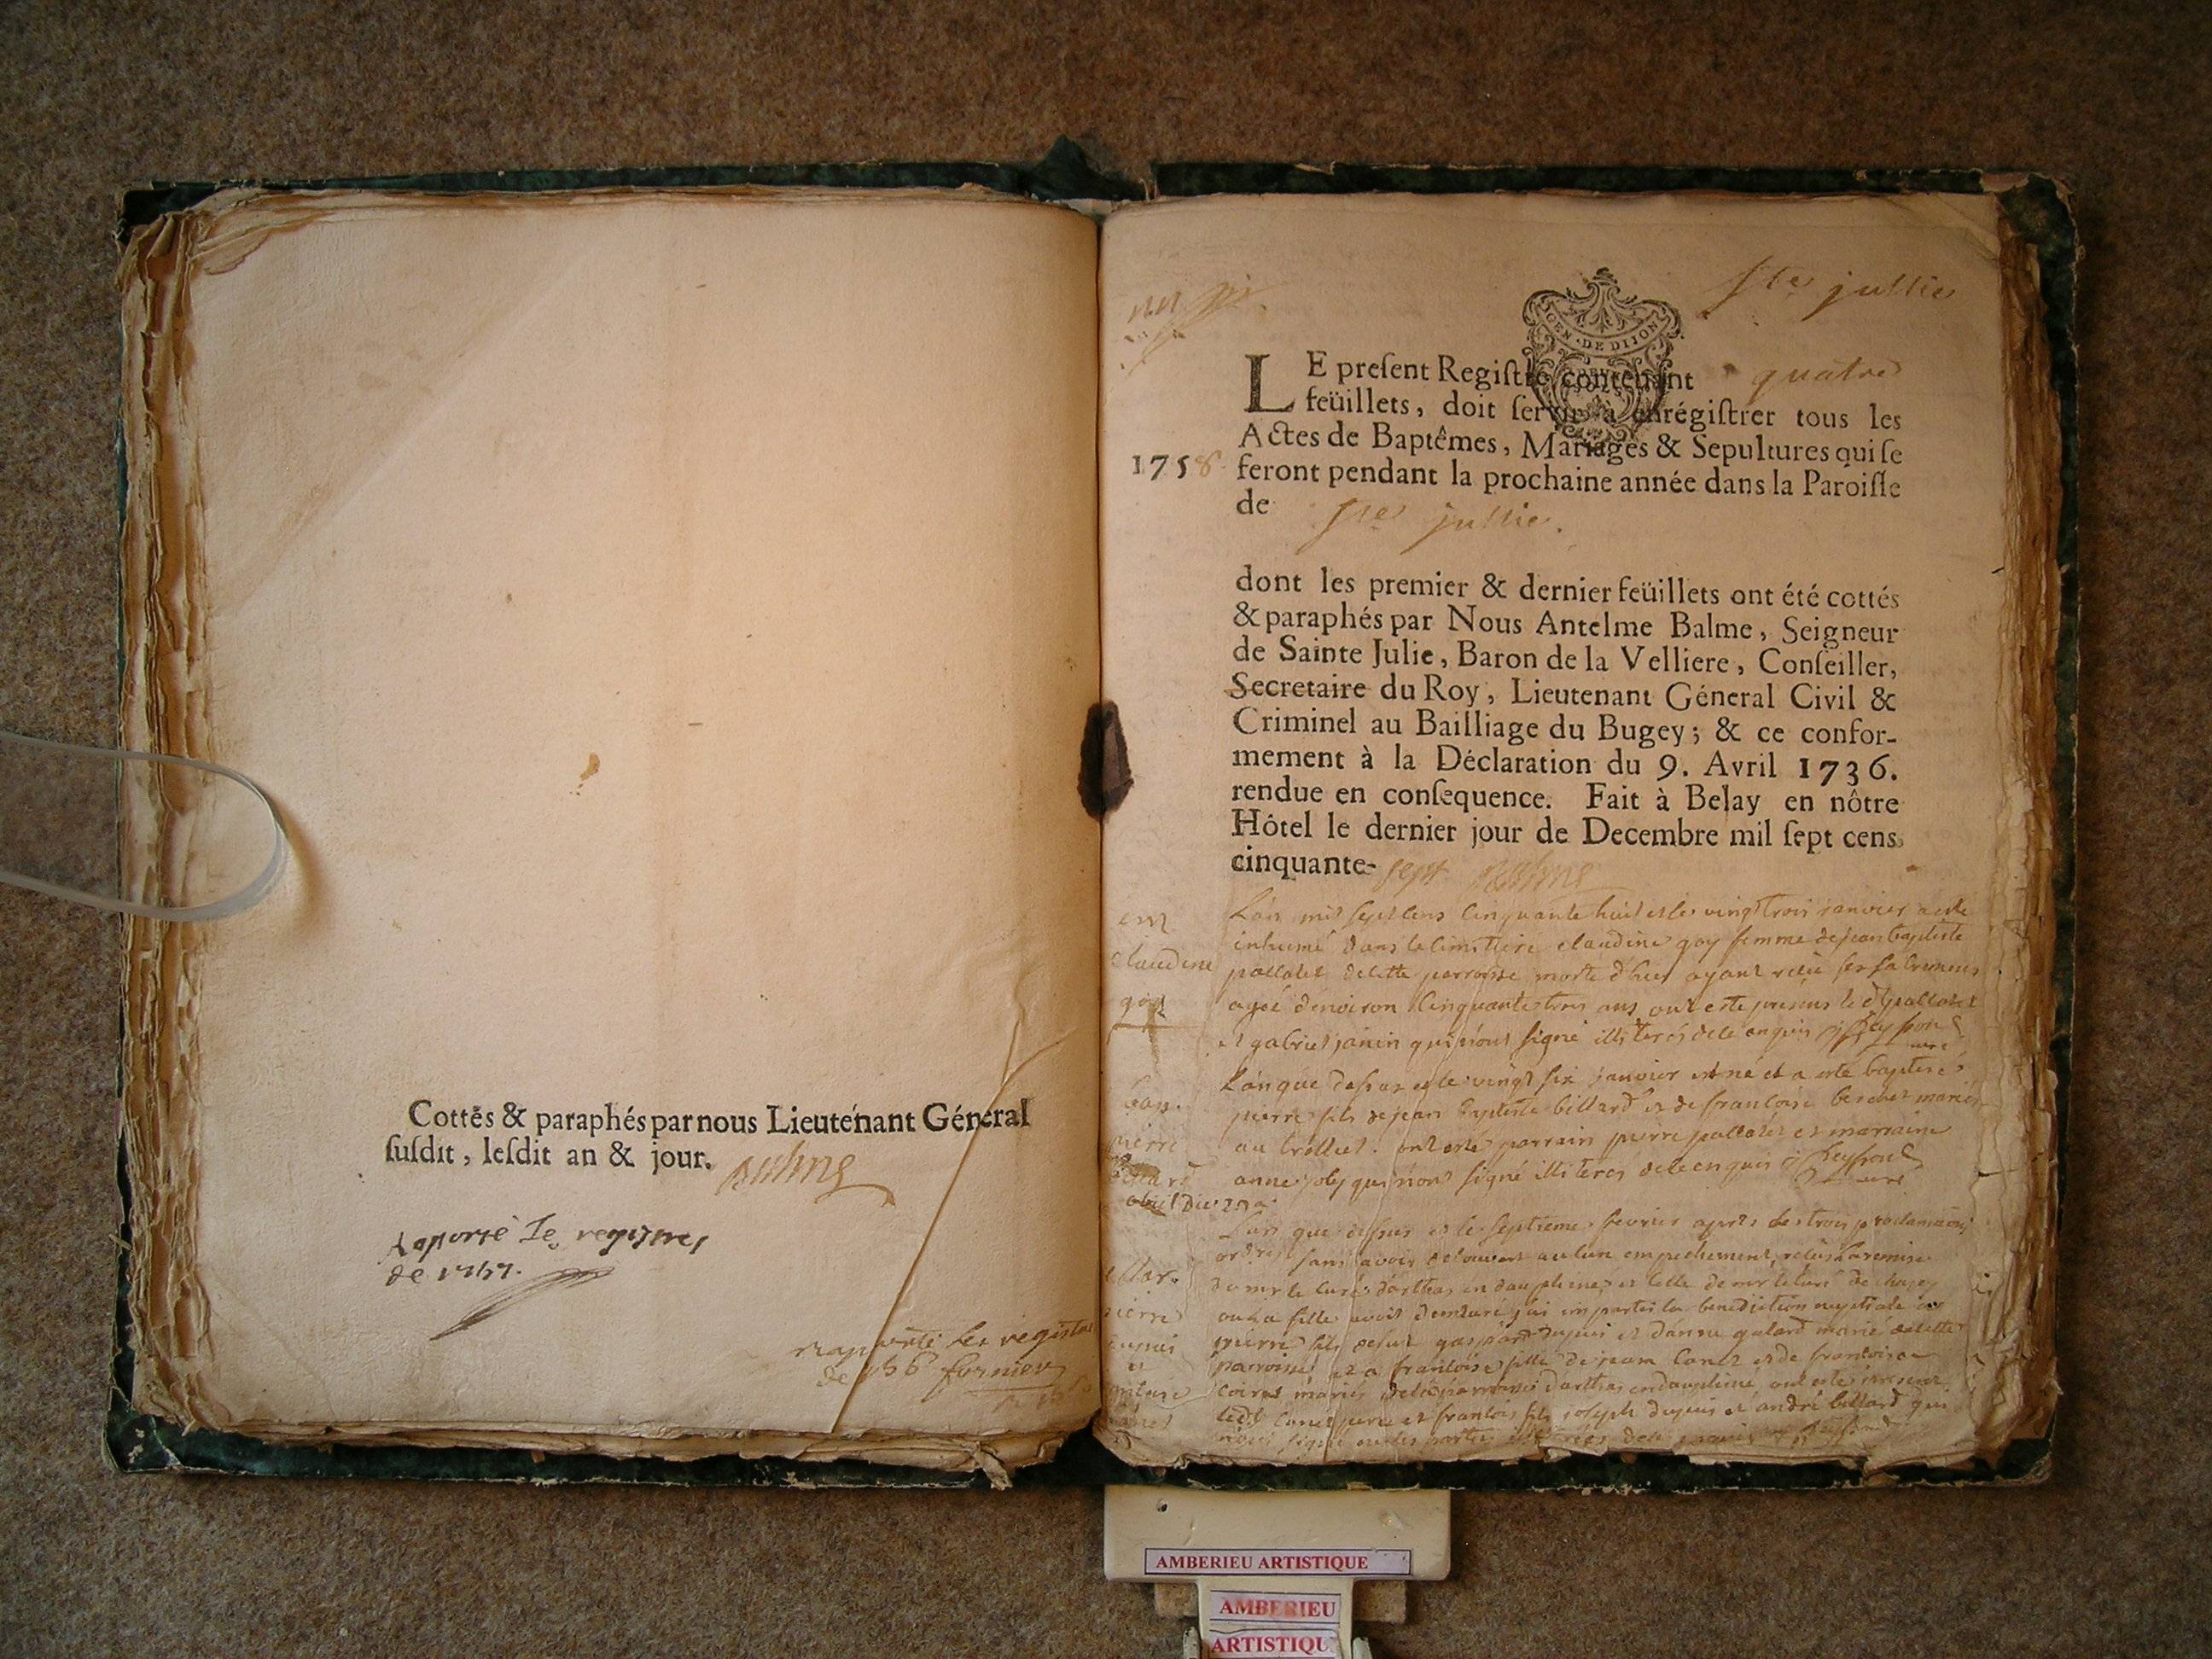 Cottés & paraphés par nous Lieutenant Géneral
susdit, lesdit an & jour. Balme
Raporté Le registre
de 1757.
raporté les registre
de 1756 fornier
Ste jullie
GEN·DE DIJON
LE present Registre contenant quatre
feüillets, doit servir à enrégistrer tous les
Actes de Baptêmes, Mariages & Sepultures qui se
1758 feront pendant la prochaine année dans la Paroisse
de Ste jullie.
dont les premier & dernier feüillets ont été cottés
& paraphés par Nous Antelme Balme, Seigneur
de Sainte Julie, Baron de la Velliere, Conseiller,
Secretaire du Roy, Lieutenant Géneral Civil &
Criminel au Bailliage du Bugey; & ce confor-
mement à la Déclaration du 9. Avril 1736.
rendue en consequence. Fait à Belay en nôtre
Hôtel le dernier jour de Decembre mil sept cens
cinquante- sept Balme
ent
claudine
goy
L'an mil sept cens cinquante huit et le vingt trois janvier a este
inhumé dans le cimitiere claudine goy femme de jean baptiste
pallatet de cette parroisse morte d'hier ayant reçu ses sacremens
agée d'environ cinquante trois ans ont este presens led pallatet
et gabriel janin qui n'ont signé illiterés de ce enquis
bap.
pierre
billard
L'an que dessus et le vingt six janvier est né et a esté baptisé
pierre fils de jean baptiste billard et de francoise mariés
au trolliet. ont esté parrain pierre pallatet et marraine
anne joly qui n'ont signé illiterés de ce enquis
L'an que dessus et le septieme fevrier aprés les trois proclamations
sans avoir decouvert aucun empechement, reçus la remise
de mr le curé d'arthas en dauphiné, et celle de mr le curé de
ou la fille avoit demeuré j'ai imparti la benediction nuptiale a
pierre
dupuis
et
pierre fils de feu gaspard dupuis et d'anne galard mariés de cette
parroisse et a francoise fille de jean et de francoise
mariés de la parroisse d'arthas en dauphiné ont esté presens
led pere et francois fils joseph dupuis et andré billard qui
n'ont signé
AMBERIEU ARTISTIQUE
AMBERIEU
ARTISTIQU